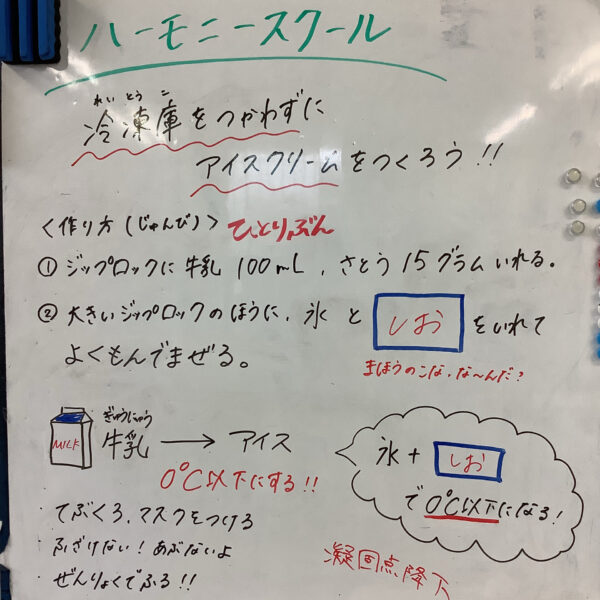 ハーモニースクール
れいとうこ
冷凍庫をつかわずに
アイスクリームをつくろう!!
<作り方(じゅんび)> ひとりぶん
① ジップロックに牛乳 100mL, さとう 15グラムいれる。
② 大きいジップロックのほうに, 氷と しお をいれて
よくもんでまぜる。
まほうのこな, な〜んだ?
ぎゅうにゅう
MILK 牛乳 → アイス
0℃以下にする!!
氷+ しお
で0℃以下になる!
・てぶくろ, マスクをつける
・ふざけない! あぶないよ
・ぜんりょくでふる!!
凝固点降下